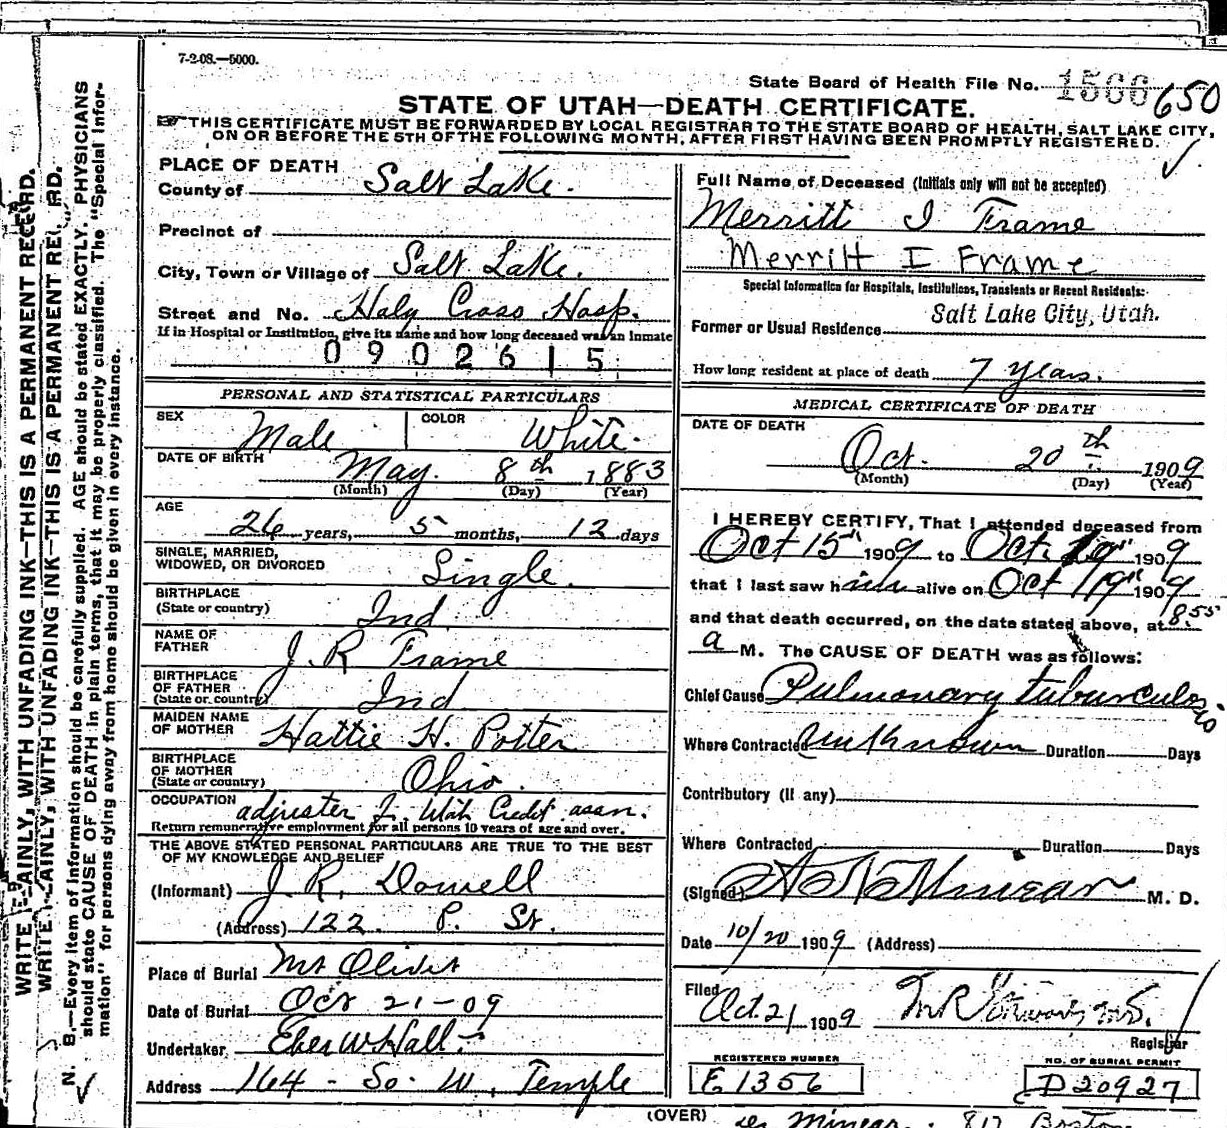 7-2-08.—5000.
State Board of Health File No. 1566 650
STATE OF UTAH—DEATH CERTIFICATE.
THIS CERTIFICATE MUST BE FORWARDED BY LOCAL REGISTRAR TO THE STATE BOARD OF HEALTH, SALT LAKE CITY,
ON OR BEFORE THE 5TH OF THE FOLLOWING MONTH, AFTER FIRST HAVING BEEN PROMPTLY REGISTERED.
WRITE PLAINLY, WITH UNFADING INK—THIS IS A PERMANENT RECORD.
N. B.—Every item of information should be carefully supplied. AGE should be stated EXACTLY. PHYSICIANS
should state CAUSE OF DEATH in plain terms, that it may be properly classified. The "Special Infor-
mation" for persons dying away from home should be given in every instance.
PLACE OF DEATH
County of Salt Lake.
Precinct of
City, Town or Village of Salt Lake.
Street and No. Holy Cross Hosp.
If in Hospital or Institution, give its name and how long deceased was an inmate
0902615
PERSONAL AND STATISTICAL PARTICULARS
SEX Male COLOR White.
DATE OF BIRTH May. 8th 1883
(Month) (Day) (Year)
AGE
26 years, 5 months, 12 days
SINGLE, MARRIED,
WIDOWED, OR DIVORCED Single.
BIRTHPLACE
(State or country) Ind
NAME OF
FATHER J. R Frame
BIRTHPLACE
OF FATHER
(State or country) Ind
MAIDEN NAME
OF MOTHER Hattie H. Potter
BIRTHPLACE
OF MOTHER
(State or country) Ohio.
OCCUPATION adjuster Utah Credit assn.
Return remunerative employment for all persons 10 years of age and over.
THE ABOVE STATED PERSONAL PARTICULARS ARE TRUE TO THE BEST
OF MY KNOWLEDGE AND BELIEF
(Informant) J. R. Dowell
(Address) 122. P. St.
Place of Burial Mt Olivet
Date of Burial Oct 21-09
Undertaker Eber W Hall
Address 164 - So. W. Temple
Full Name of Deceased (Initials only will not be accepted)
Merritt I Frame
Merritt I Frame
Special Information for Hospitals, Institutions, Transients or Recent Residents:
Former or Usual Residence Salt Lake City, Utah.
How long resident at place of death 7 years.
MEDICAL CERTIFICATE OF DEATH
DATE OF DEATH
Oct. 20th 1909
(Month) (Day) (Year)
I HEREBY CERTIFY, That I attended deceased from
Oct 15" 1909 to Oct. 19" 1909
that I last saw him alive on Oct 19" 1909
and that death occurred, on the date stated above, at 8.55
a M. The CAUSE OF DEATH was as follows:
Chief Cause Pulmonary tuberculosis
Where Contracted Unknown Duration Days
Contributory (If any)
Where Contracted Duration Days
(Signed) Minear M. D.
Date 10/20 1909 (Address)
Filed
Oct. 21 1909
Registrar
REGISTERED NUMBER
E 1356
NO. OF BURIAL PERMIT
D 20927
(OVER) Dr Minear. 817 Boston